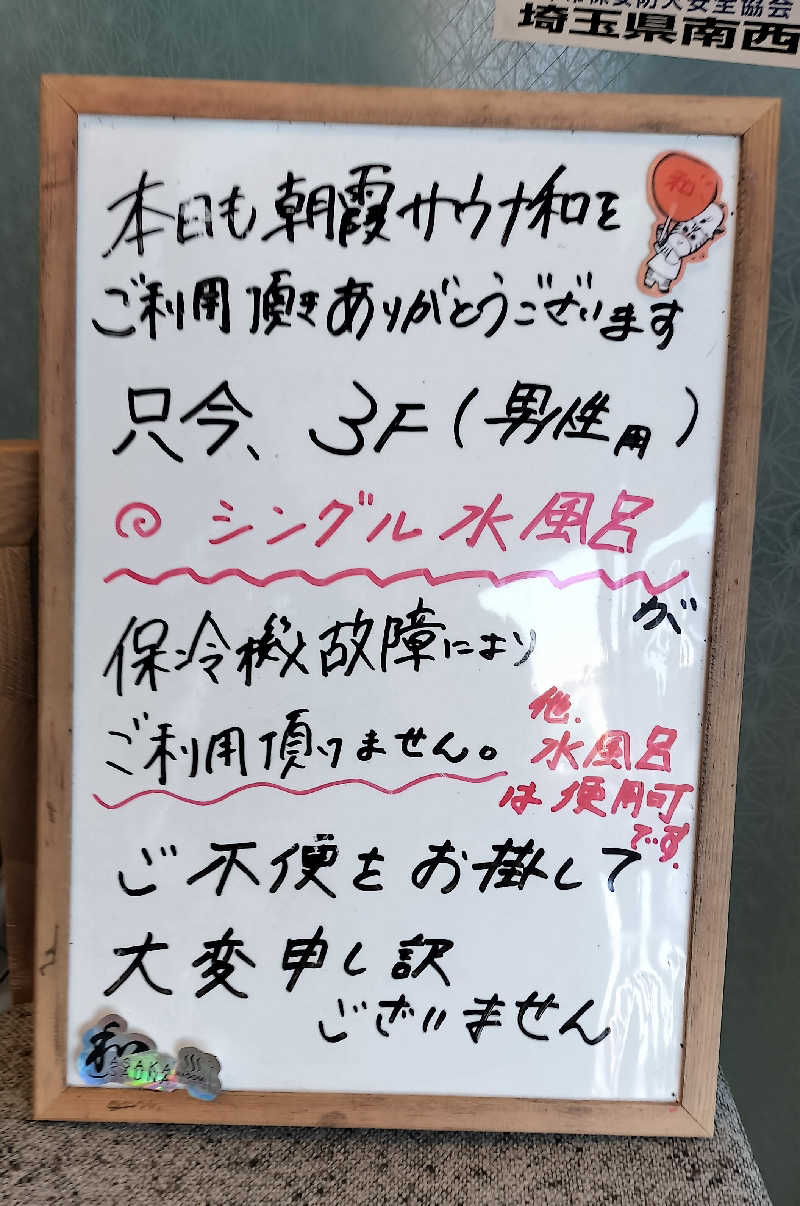 埼玉県南西
本日も朝霞サウナ和を
ご利用頂きありがとうございます
只今、3F(男性用)
シングル水風呂
が
保冷機故障により
ご利用頂けません。
他.
水風呂
は使用可
です.
ご不便をお掛して
大変申し訳
ございません
和
和